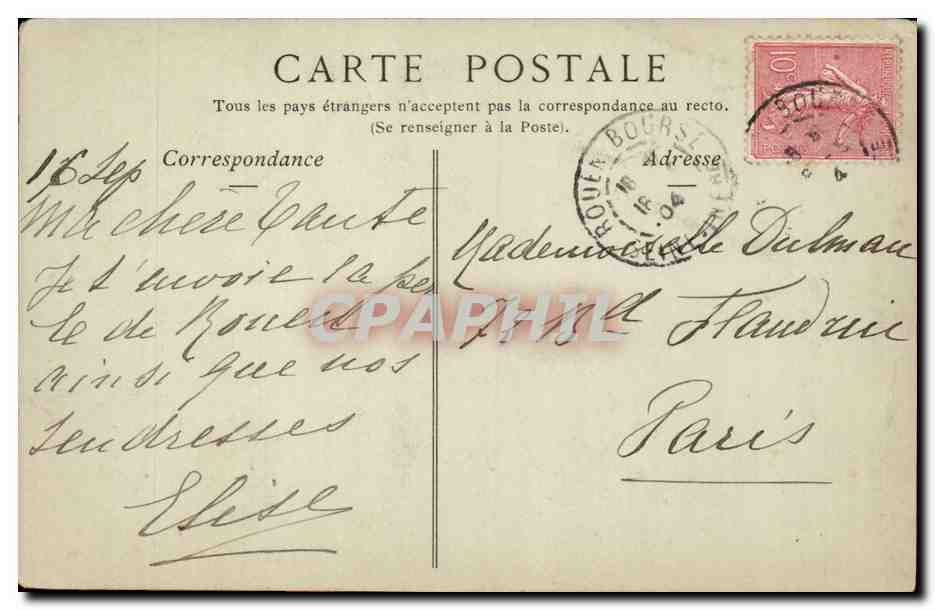 CARTE POSTALE
Tous les pays étrangers n'acceptent pas la correspondance au recto.
(Se renseigner à la Poste).
Correspondance
Adresse
16 Sep
Ma chère Tante
Je t'envoie la pe
le de Rouen
ainsi que nos
tendresses
Elise
Mademoiselle Dulman
Bd Flandrin
Paris
ROUEN BOURSE
18
04
10c
CPAPHIL